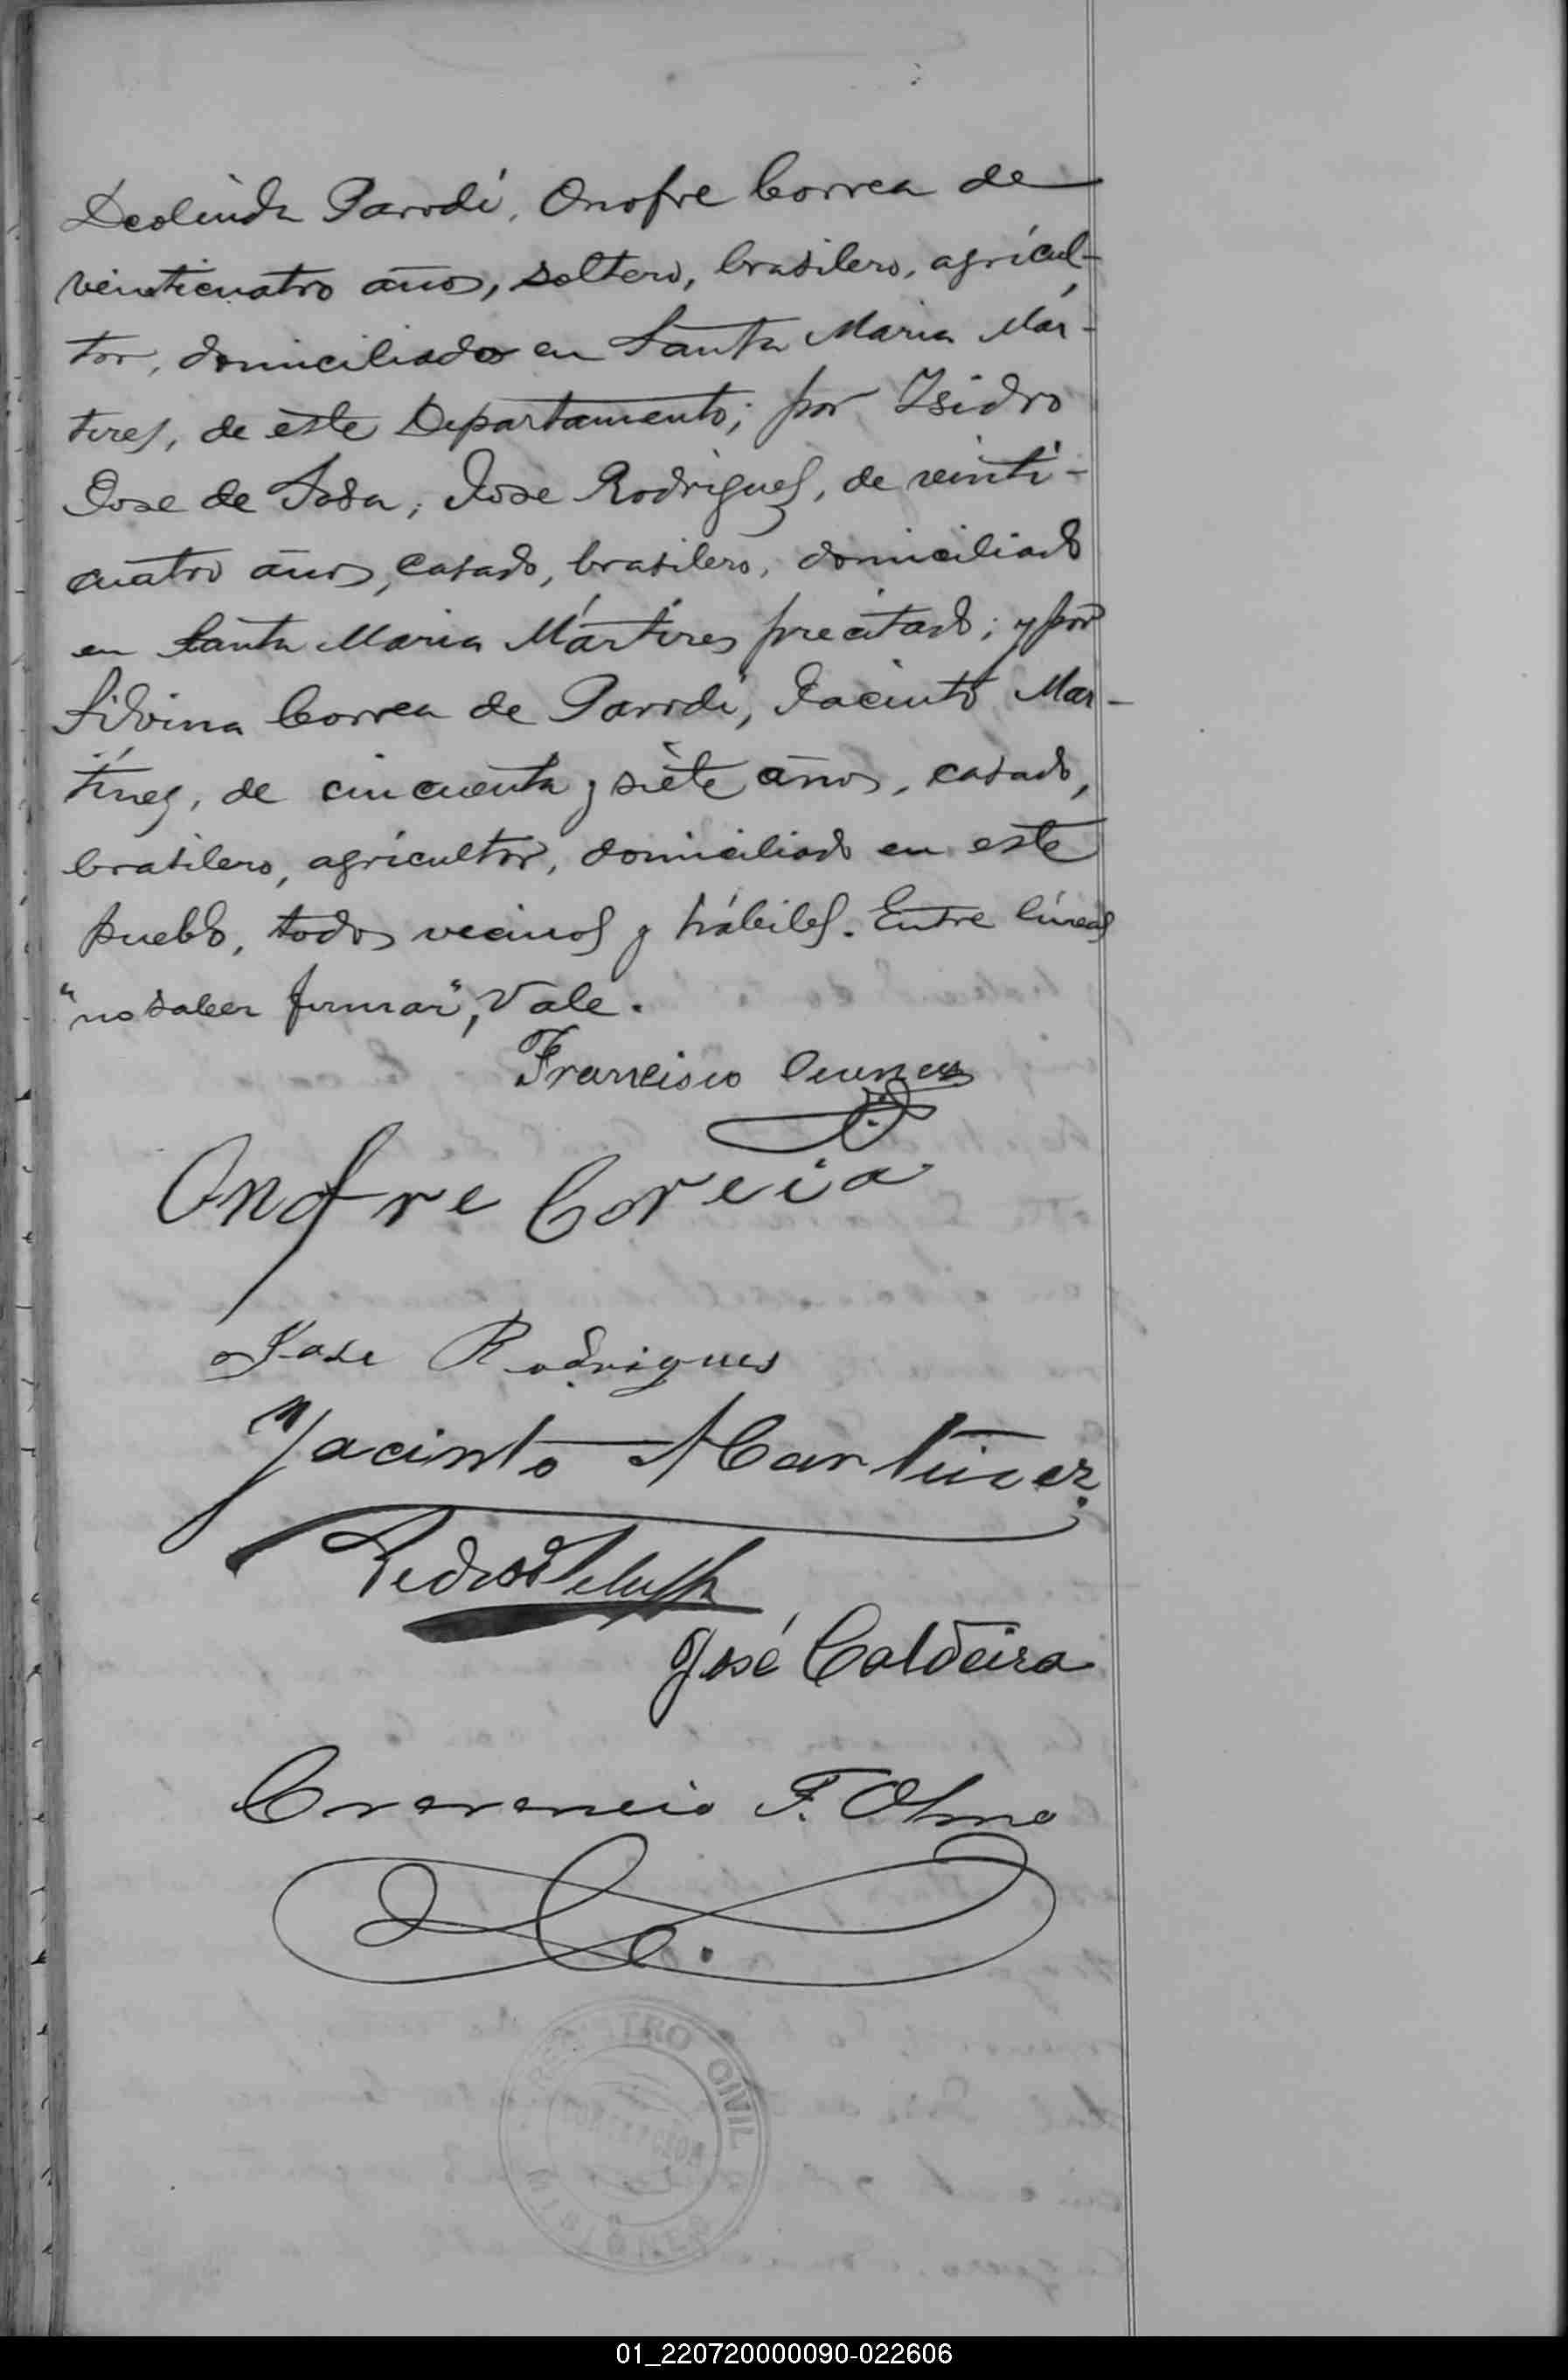 Deolinda Parodi, Onofre Correa de
veinticuatro años, soltero, brasilero, agricul-
tor, domiciliado en Santa Maria Már-
tires, de este Departamento; por Isidro
Jose de Sosa, Jose Rodrigues, de veinti-
cuatro años, casado, brasilero, domiciliado
en Santa Maria Mártires precitado; y por
Silvina Correa de Parodi, Jacinto Mar-
tínez, de cincuenta y siete años, casado,
brasilero, agricultor, domiciliado en este
pueblo, todos vecinos y hábiles. Entre líneas
"no saber firmar", Vale.
Francisco
Onofre Correia
Jose Rodrigues
Jacinto Martinez
Pedro
José Caldeira
F. Olmo
REGISTRO CIVIL
CONCEPCION
MISIONES
01_220720000090-022606